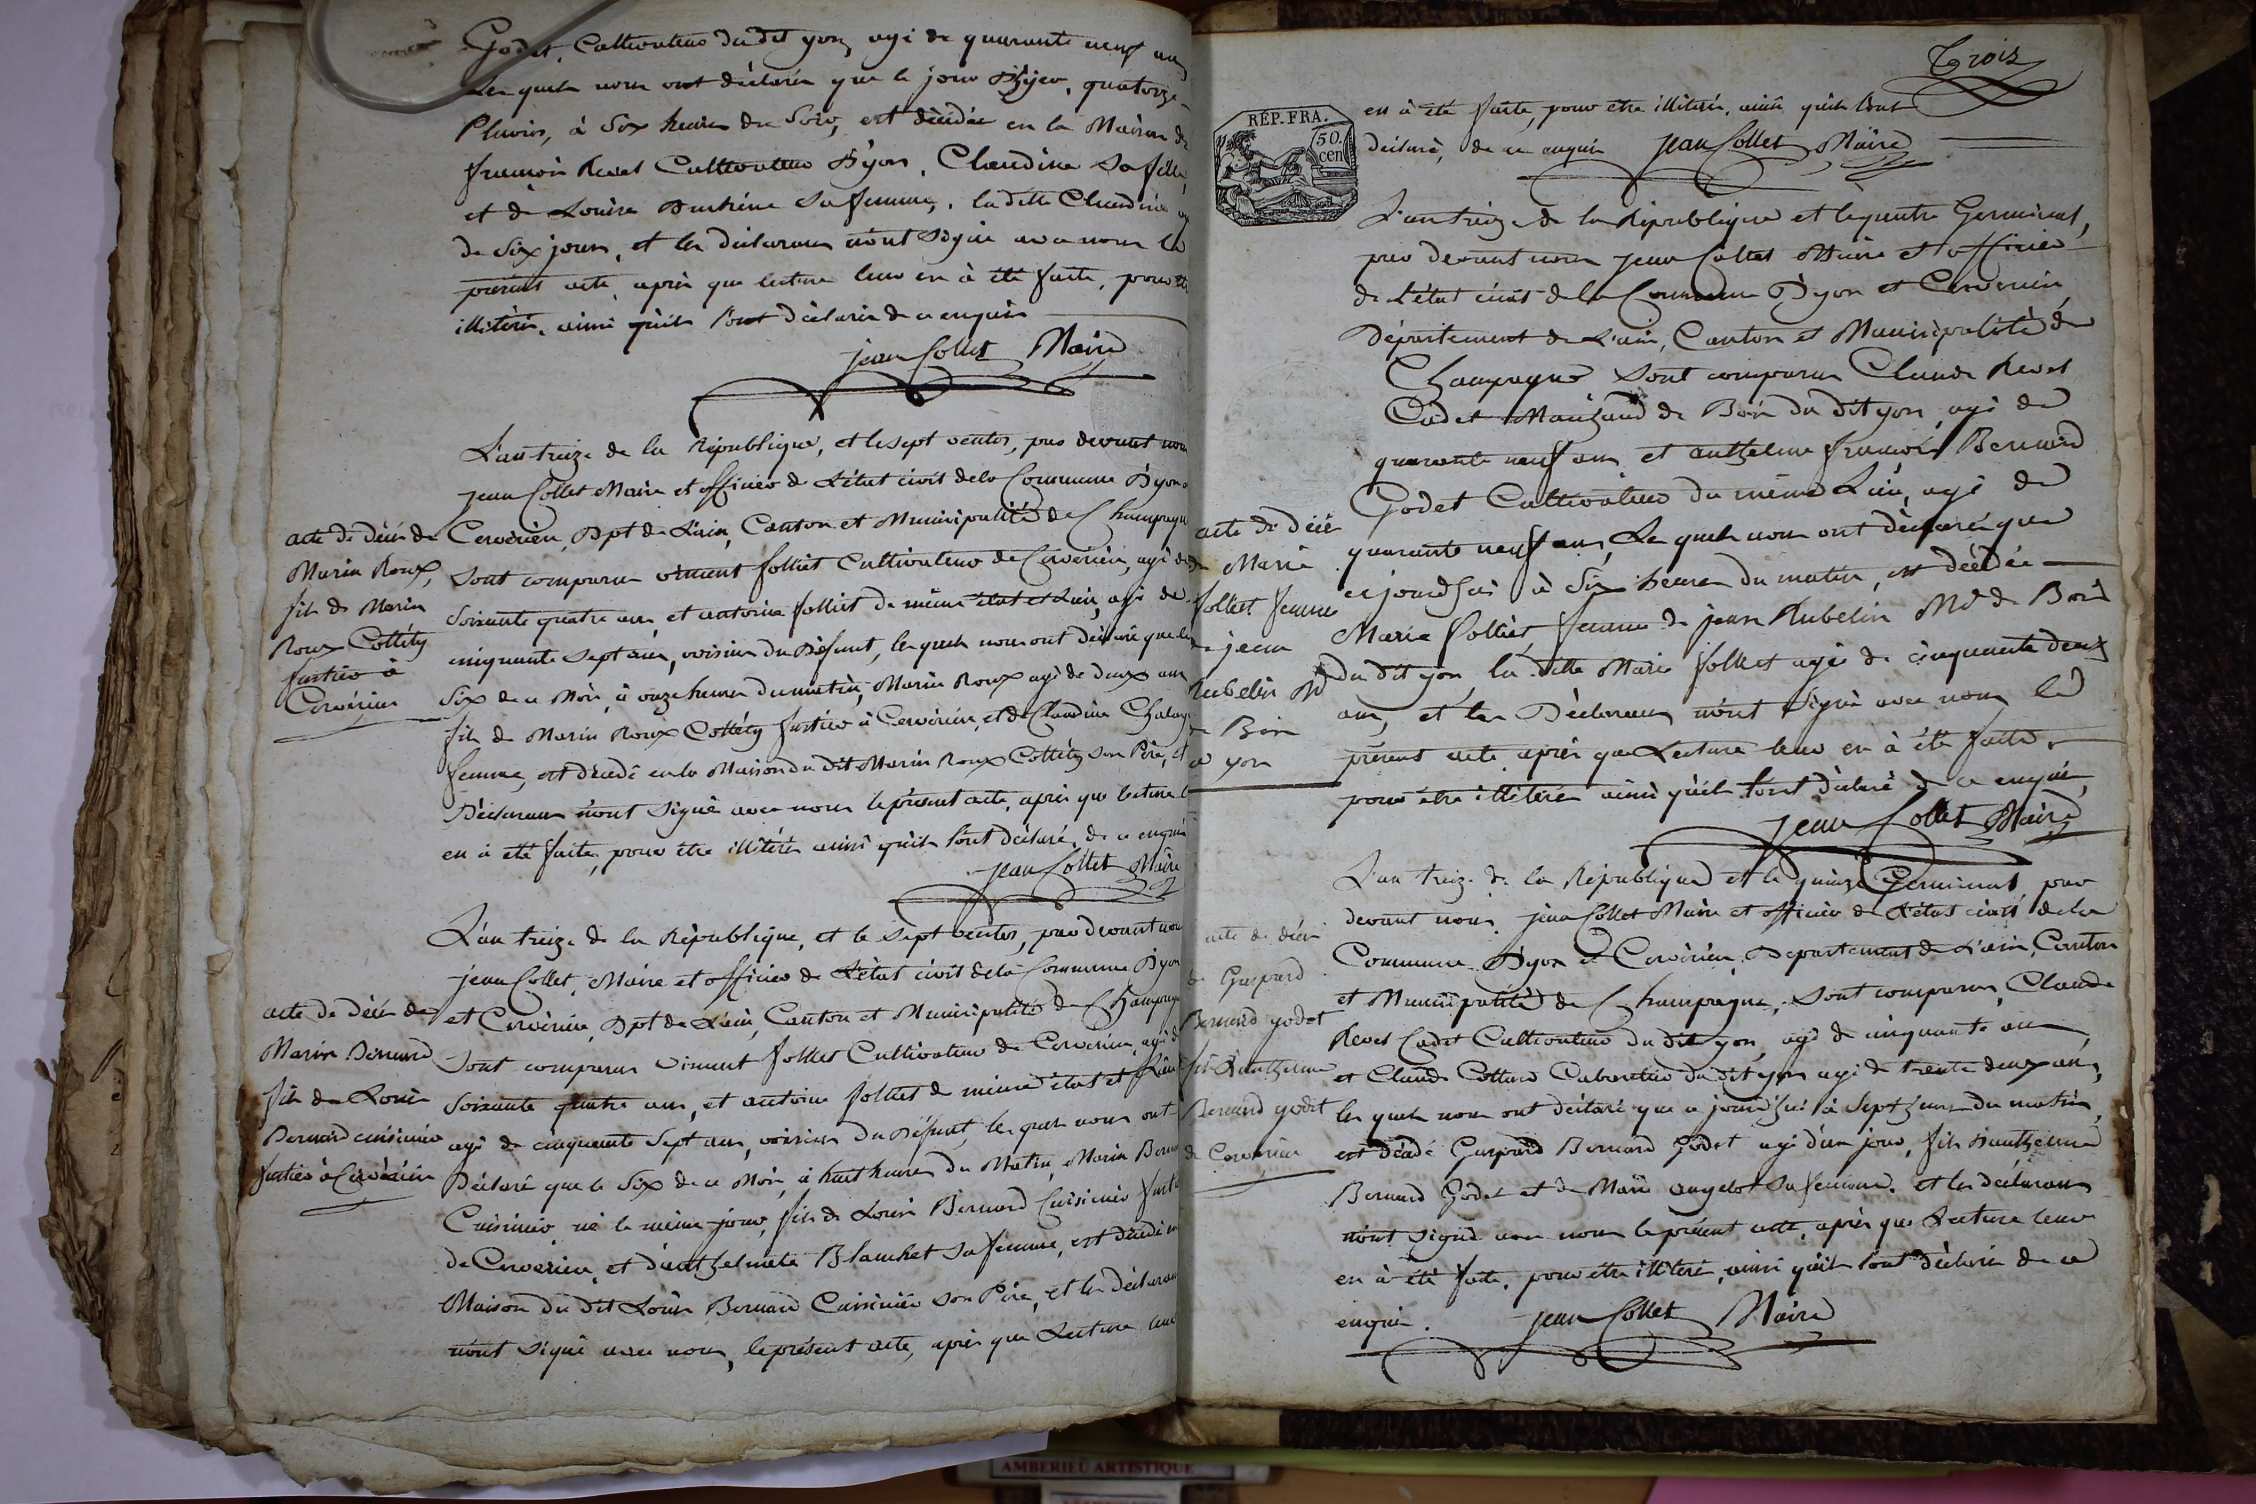 Godet, Cultivateur du dit yon, agé de quarante neuf ans
Les quels nous ont déclarés que le jour D'hyer, quatorze
Pluvios, à Six heures du Soir, est décédée en la Maison de
françois Revet Cultivateur D'yon, Claudine Sa fille,
et de Louise Sa femme, la ditte Claudine
de Six jours, et les déclarans n'ont Signé avec nous le
présent acte, après que lecture leur en à été faite, pour
illitérés, ainsi qu'ils l'ont déclarés de ce enquis
jean Collet Maire
L'an treize de la République, et le sept ventos, par devant nous
jean Collet Maire et officier de L'état civil de la Commune D'yon
acte de décès de
Marin Roux,
fils de Marin
Roux Colléty
fustier à
Cervérieu
Cervérieu, Dpt de L'ain, Canton et Municipalité de Champagne
Sont comparus vincent folliet Cultivateur de Cervérieu, agé de
Soixante quatre ans, et antoine folliet de même état et Lieu, agé de
cinquante Sept ans, voisins du Défunt, les quels nous ont déclaré que le
Six de ce Mois, à onze heures du matin, Marin Roux agé de deux ans
fils de Marin Roux Colléty fustier à Cervérieu, et de Claudine
femme, est décédé en la Maison du dit Marin Roux Colléty son Père, et
Déclarans n'ont Signé avec nous le présent acte, après que lecture
en à été faite, pour être illitérés ainsi qu'ils l'ont déclaré, de ce enquis
jean Collet Maire
L'an treize de la République, et le Sept ventos, par devant nous
jean Collet, Maire et officier de L'état civil de la Commune D'yon
acte de décès de
Marin Bernard
fils de Louis
Bernard cuisinier
fustier à Cervérieu
et Cervérieu, Dpt de L'ain, Canton et Municipalité de Champagne
Sont comparus vincent folliet Cultivateur de Cervérieu, agé de
Soixante quatre ans, et antoine folliet de même état et Lieu
agé de cinquante Sept ans, voisins du Défunt, les quels nous ont
Déclaré que le Six de ce Mois, à huit heures du Matin, Marin
Cuisinier, né le même jour, fils de Louis Bernard Cuisinier
de Cervérieu, et d'anthelmete Blanchet Sa femme, est décédé
Maison du dit Louis Bernard Cuisinier Son Père, et les déclarans
n'ont Signé avec nous, le présent acte, après que Lecture leur
Trois
RÉP. FRA.
50.
cen
en à été faite, pour être illitérés, ainsi qu'ils l'ont
déclaré, de ce enquis jean Collet Maire
L'an treize de la République et le quatre Germinal,
par devant nous jean Collet Maire et officier
de L'état civil de la Commune D'yon et Cervérieu
Département de L'ain, Canton et Municipalité de
Champagne Sont comparus Claude Revet
Cadet Marchand de Bois du dit yon, agé de
quarante neuf ans, et anthelme françois Bernard
Godet Cultivateur du même Lieu, agé de
acte de décè
Marie
follet femme
jean
Rubelin Md
Bois
yon
quarante neuf ans, Les quels nous ont déclaré que
ce jourd'hui à Six heures du matin, est décédée
Marie folliet, femme de jean Rubelin Md de Bois
du dit yon, la ditte Marie folliet agée de cinquante deux
ans, et les Déclarans n'ont Signé avec nous le
présent acte après que Lecture leur en à été faitte,
pour être illitérés ainsi qu'ils l'ont déclaré de ce enquis,
jean Collet Maire
L'an treize de la République et le quinze Germinal, par
devant nous, jean Collet Maire et officier de L'état civil de la
acte de décès
de Gaspard
Bernard godet
fils D'anthelme
Bernard godet
de Cervérieu
Commune D'yon et Cervérieu, Département de L'ain, Canton
et Municipalité de Champagne, Sont comparus, Claude
Revet Cadet Cultivateur du dit yon, agé de cinquante ans,
et Claude Cabaretier du dit yon agé de trente deux ans,
les quels nous ont déclaré que ce jourd'hui à Sept heures du matin,
est décédé Gaspard Bernard Godet agé d'un jour, fils D'anthelme
Bernard Godet et de Marie Sa femme, et les déclarans
n'ont Signé avec nous le présent acte, après que Lecture leur
en à été faite, pour être illitéré, ainsi qu'ils l'ont déclaré de ce
enquis. jean Collet Maire
AMBERIEU ARTISTIQUE